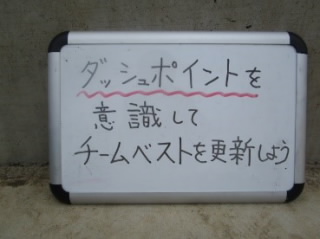 ダッシュポイントを
意識して
チームベストを更新しよう